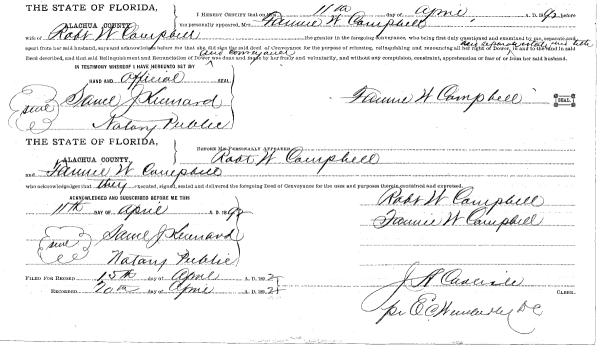 THE STATE OF FLORIDA,
ALACHUA COUNTY.
I HEREBY CERTIFY that on this 11th day of April A. D. 1892 before
me personally appeared Mrs. Fannie W Campbell
wife of Robt W Campbell the grantor in the foregoing conveyance, who being first duly questioned and examined by me separate and
apart from her said husband, say and acknowledge before me that she did sign the said deed of Conveyance for the purpose of relinquishing and renouncing all her right of Dower, in and to the land in said
Deed described, and that said Relinquishment and Renunciation of Dower was done and made by her freely and voluntarily, and without any compulsion, constraint, apprehension or fear of or from her said husband.
IN TESTIMONY WHEREOF I HAVE HEREUNTO SET MY
HAND AND official SEAL
seal
Saml J Kennard
Notary Public
Fannie W Campbell SEAL.
THE STATE OF FLORIDA,
ALACHUA COUNTY.
BEFORE ME PERSONALLY APPEARED Robt W Campbell
and Fannie W Campbell
who acknowledges that they executed, signed, sealed and delivered the foregoing Deed of Conveyance for the uses and purposes therein contained and expressed.
ACKNOWLEDGED AND SUBSCRIBED BEFORE ME THIS
11th DAY OF April A. D. 1892
Robt W Campbell
Fannie W Campbell
seal
Saml J Kennard
Notary Public
FILED FOR RECORD 15th day of April A. D. 1892
RECORDED 20th day of April A. D. 1892
J A Carlisle CLERK.
pr E C Wimberly D C